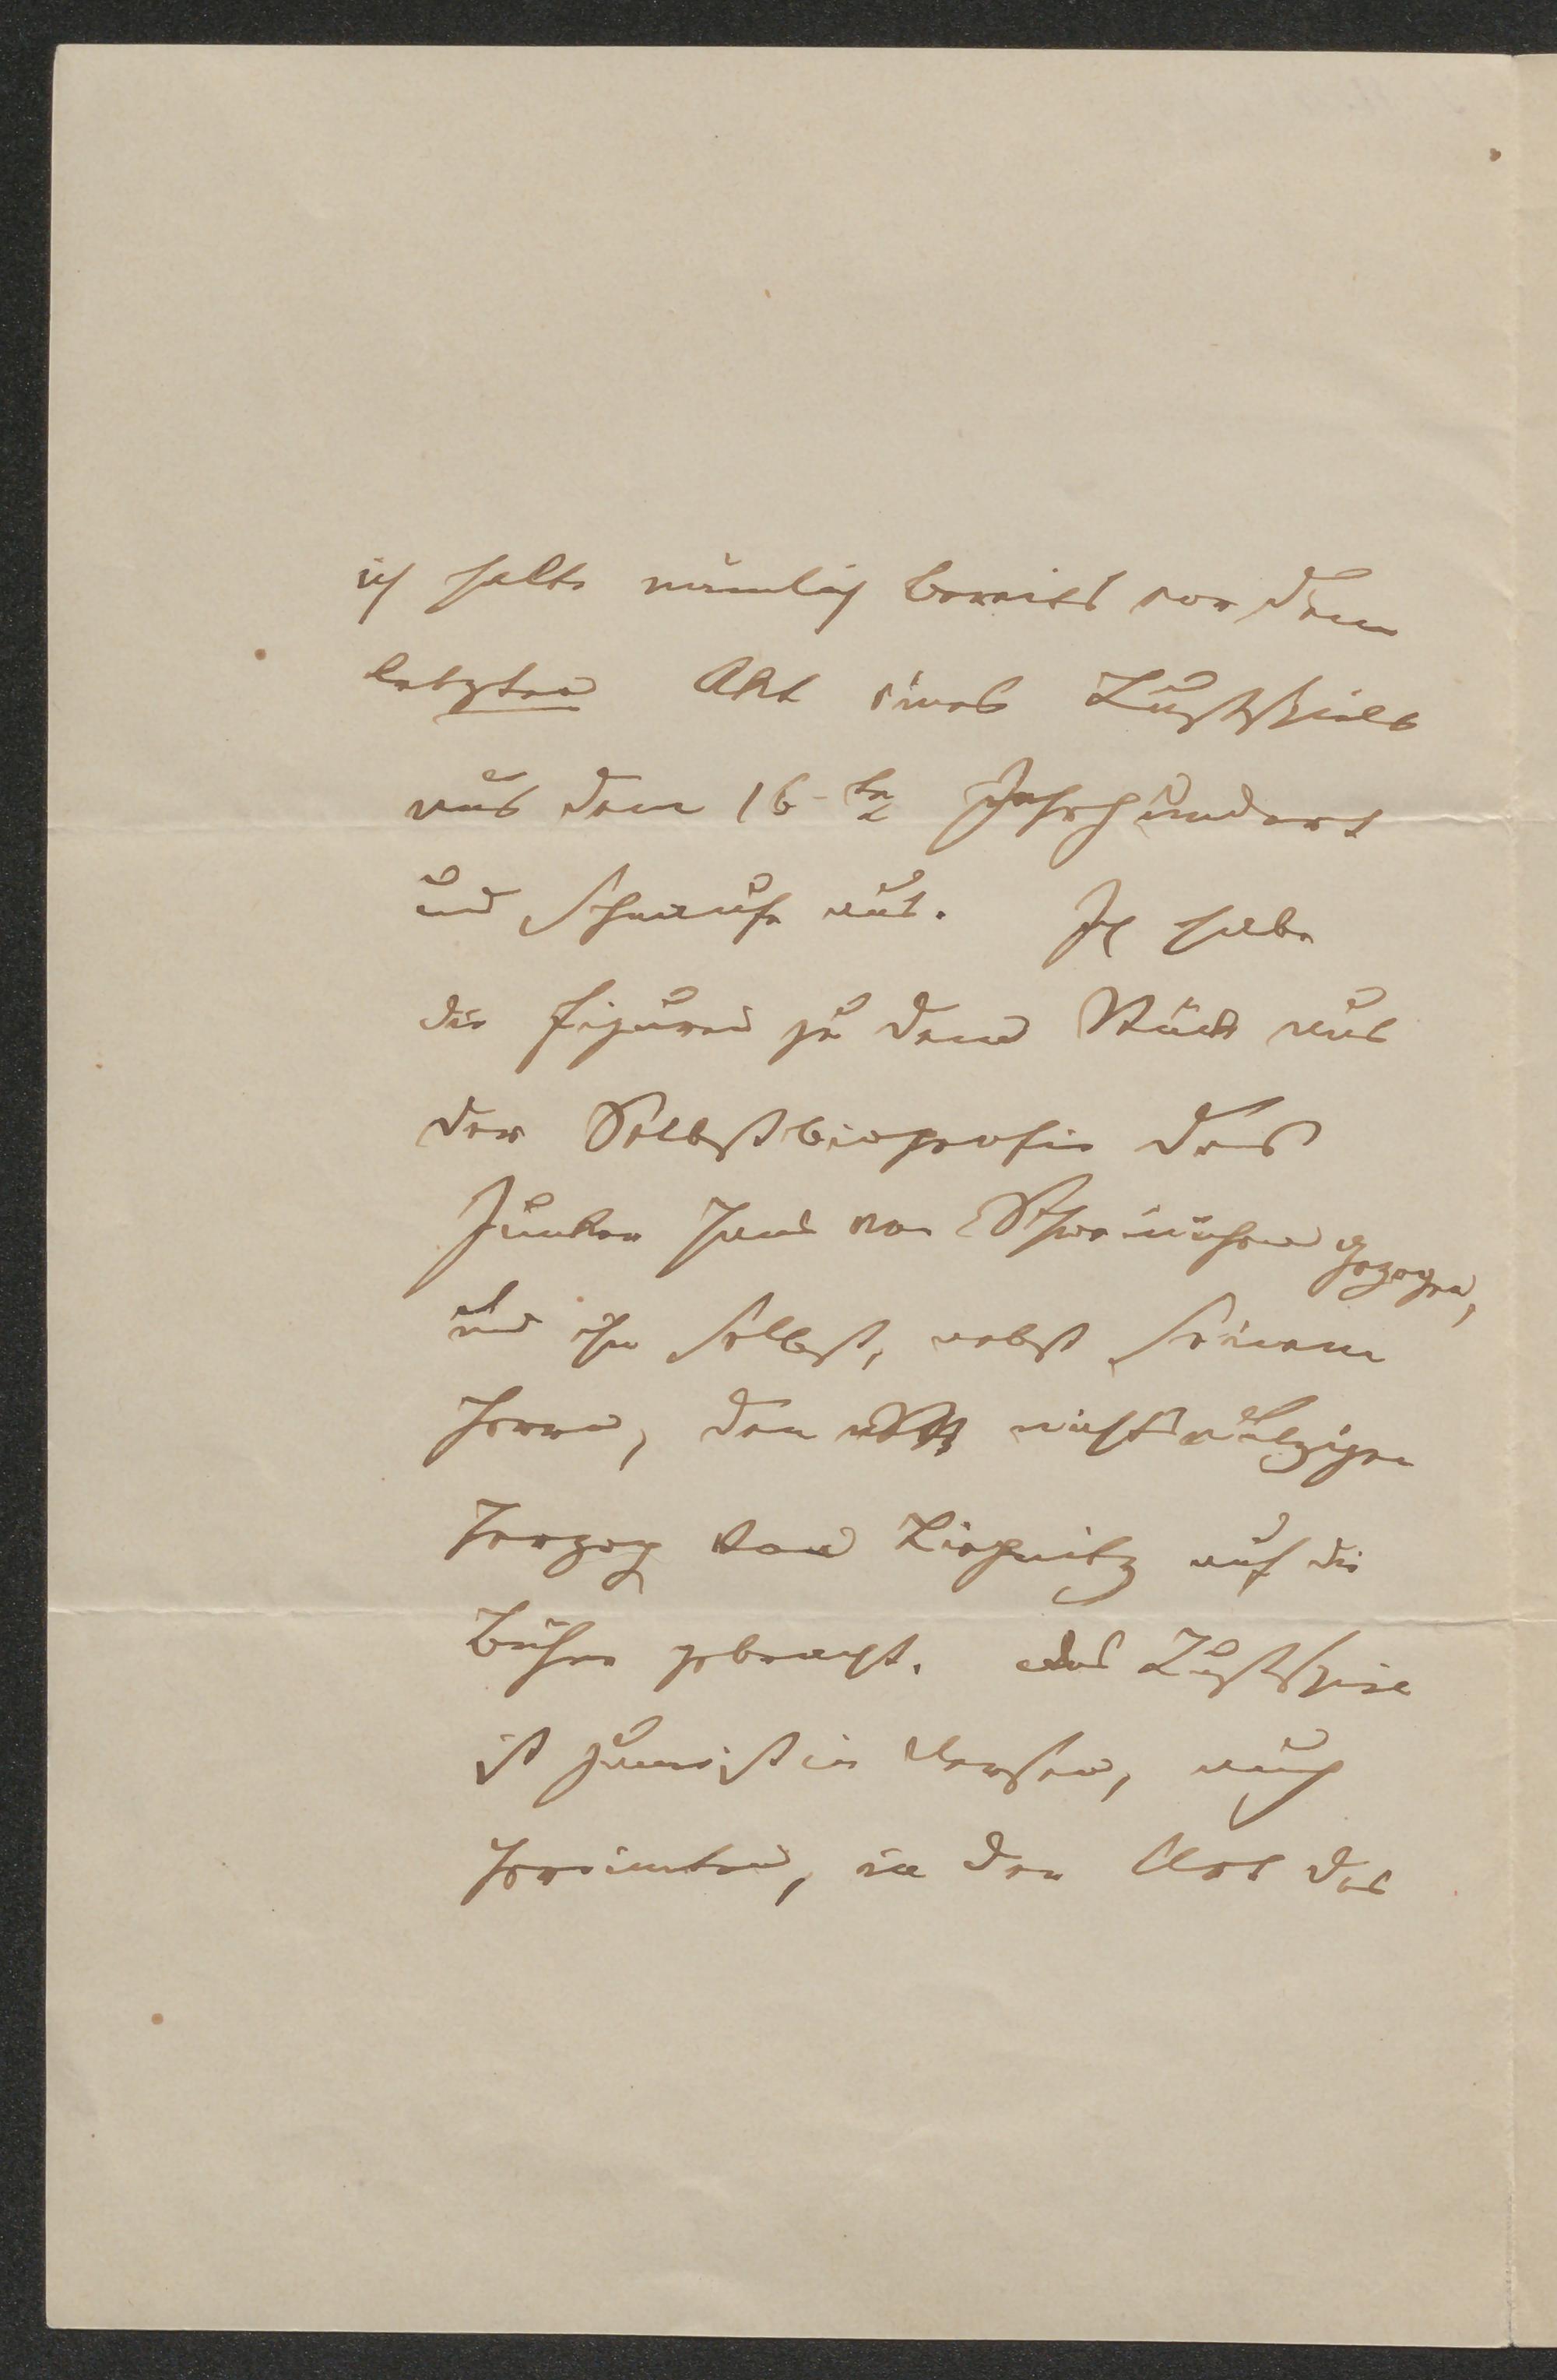 ich halte nämlich bereits vor dem
letzten Akt eines Lustspiels
aus dem 16-ten Jahrhundert
und schnaufe aus. Ich habe
die Figuren zu dem Stück aus
der Selbstbiografie des
Junker Hans von Schweinichen gezogen,
und ihn selbst, nebst seinem
Herrn, den nichtsnutzigen
Herzog von Liegnitz auf die
Bühne gebracht. Das Lustspiel
ist zumeist in Versen, auch
Gereimten, in der Art des